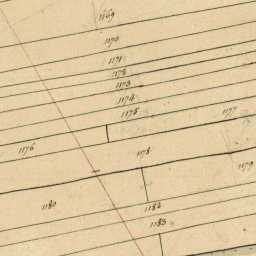 1169
1170
1171
1172
1173
1174
1175
1177
1176
1178
1179
1180
1182
1183